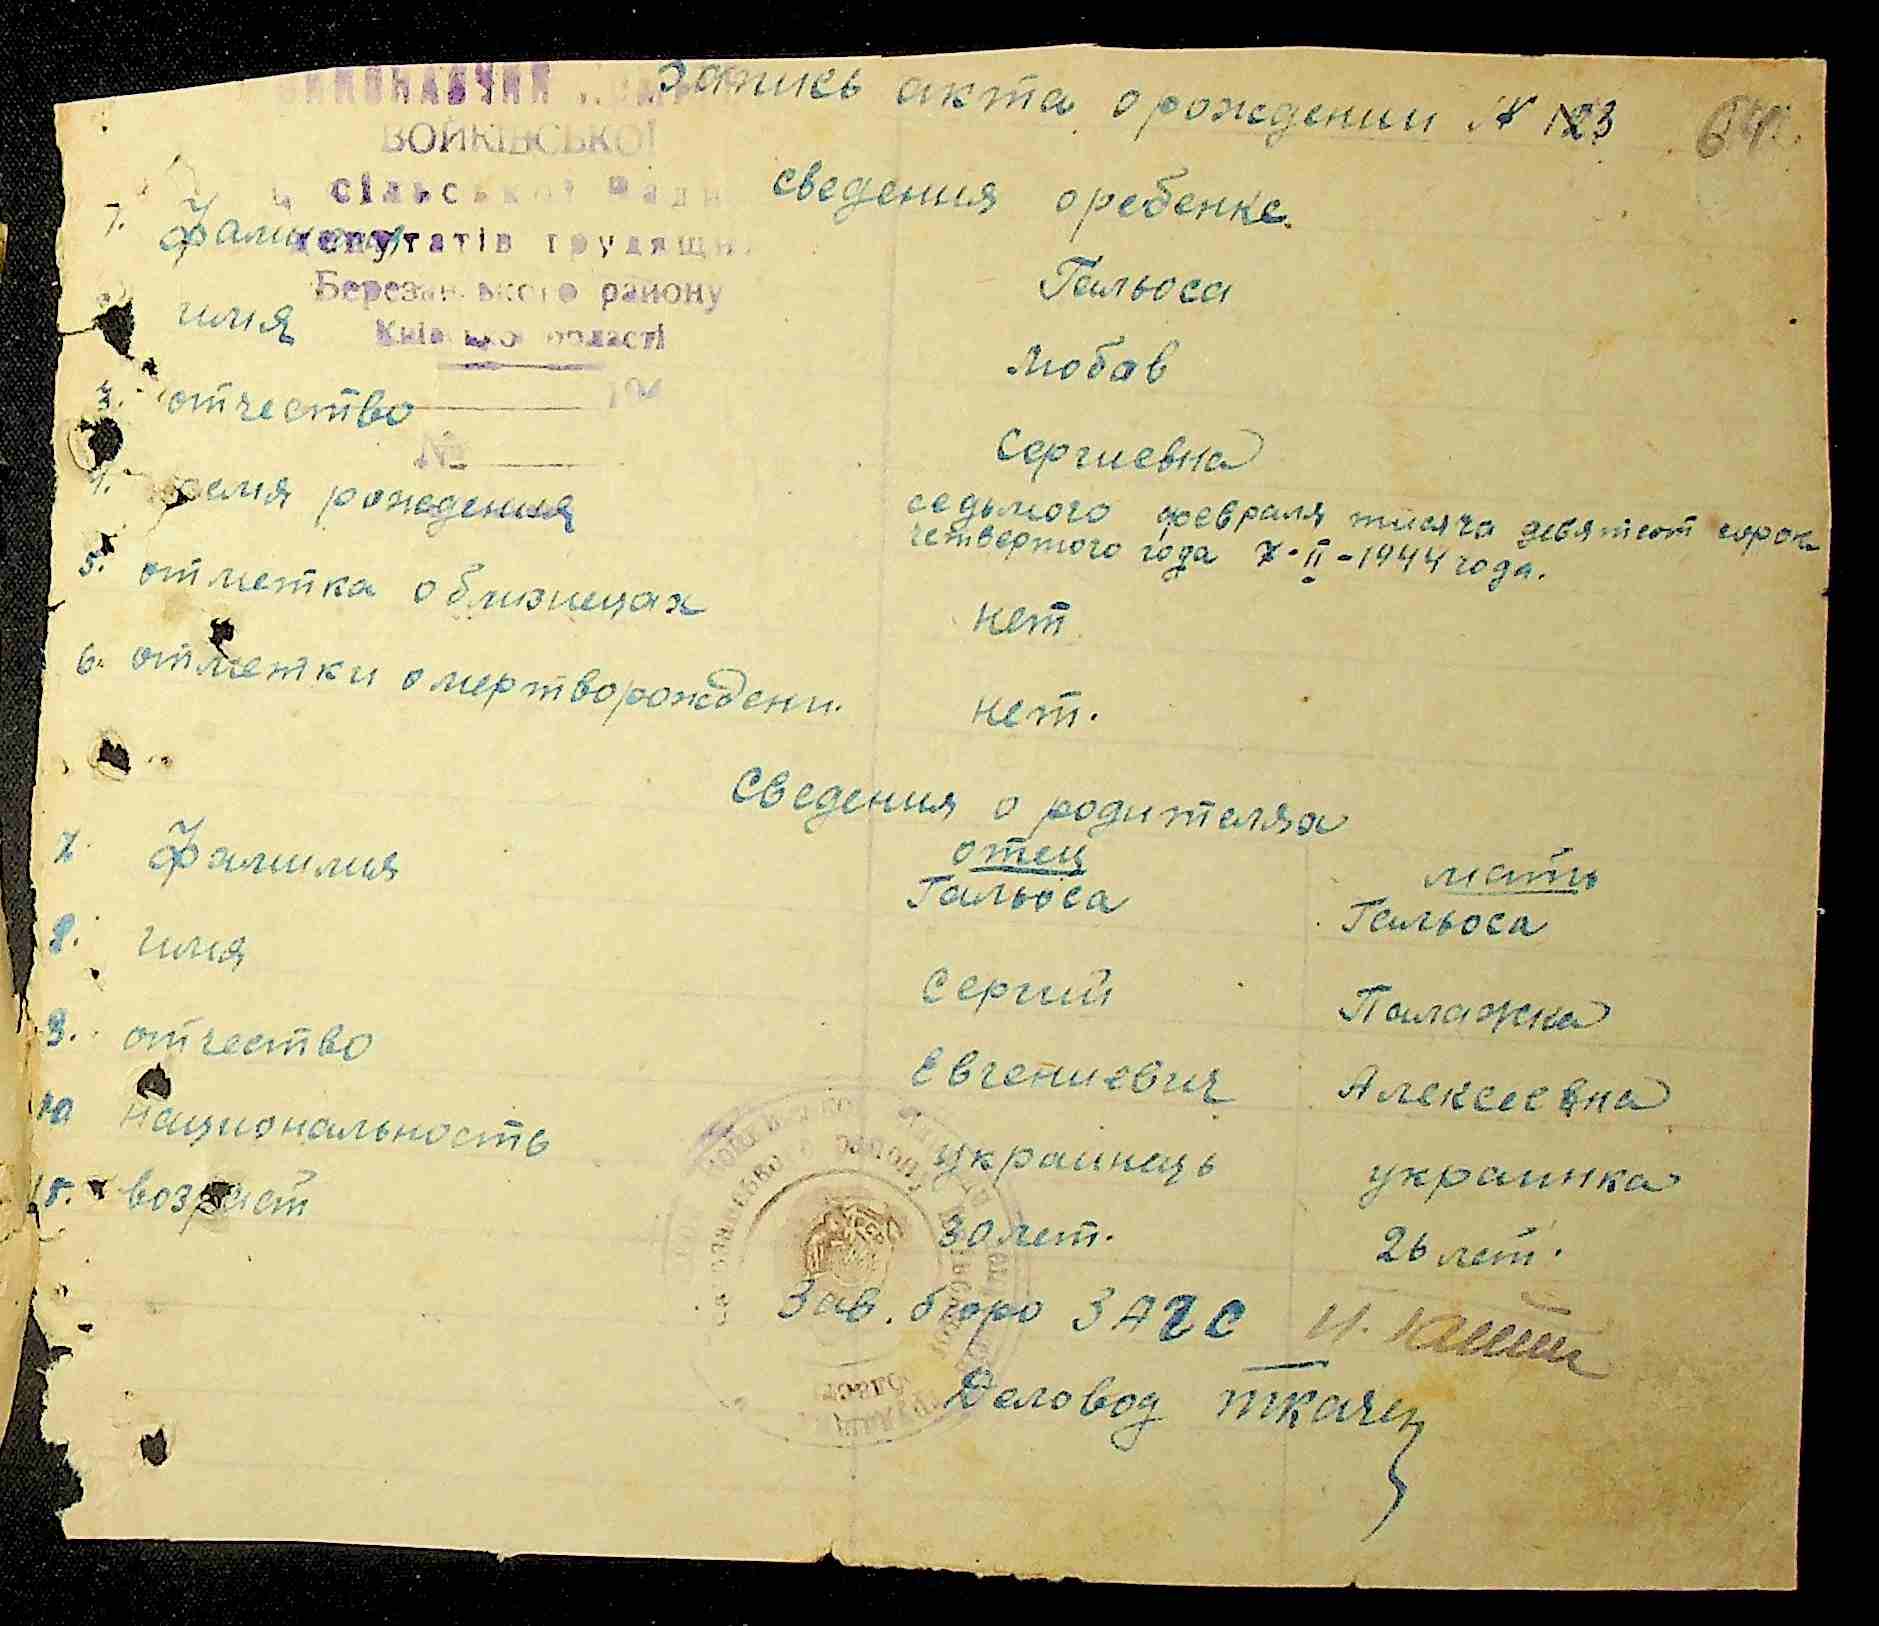 Запись акта о рождении № 123
64.
ВОЙКІВСЬКОЇ
сільської Ради
депутатів трудящих
Березанського району
Київської області
194
№
сведения о ребенке.
1. Фамилия Гальоса
имя Любов
3. отчество Сергиевна
4. время рождения седьмого февраля тисяча девятсот сорок
четвертого года 7-II-1944 года.
5. отметка о близнецах нет
6. отметки о мертворождени. нет.
Сведения о родителях
отец мать
7. Фамилия Гальоса Гальоса
8. имя Сергий Палажка
9. отчество Евгениевич Алексеевна
10 национальность украинець украинка
15. возраст 30 лет. 26 лет.
Зав. бюро ЗАГС
Деловод Ткачен